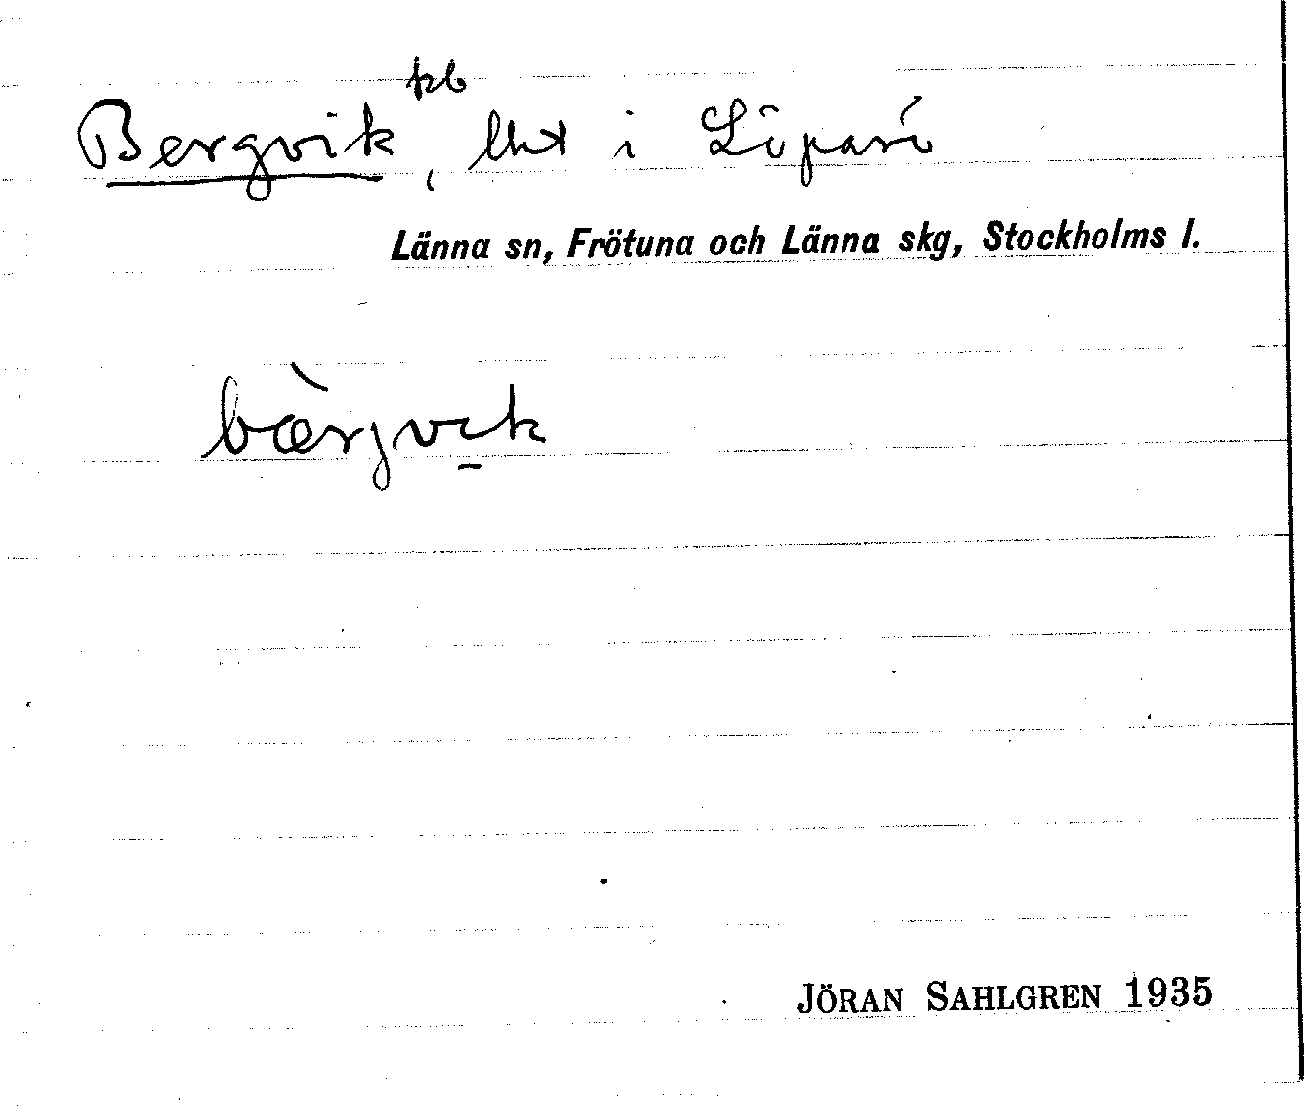 kb
Bergvik, lht i Löparö
Länna sn, Frötuna och Länna skg, Stockholms l.
bæ̀rjvik
JÖRAN SAHLGREN 1935